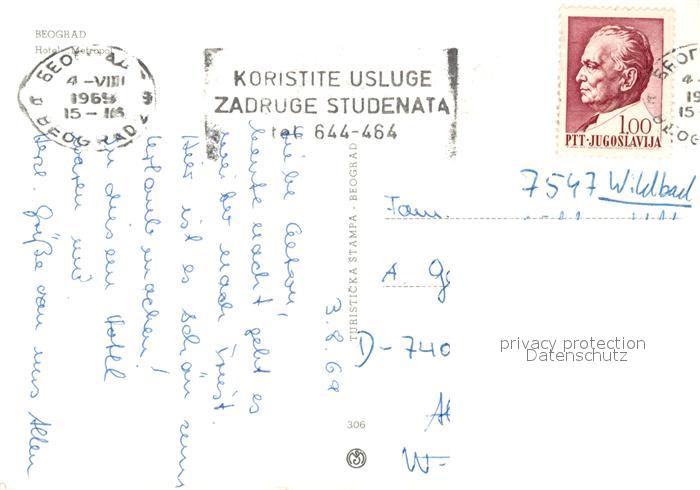 BEOGRAD
Hotel „Metropol"
БЕОГРАД
4-VIII
1969
15-16
BEOGRAD
KORISTITE USLUGE
ZADRUGE STUDENATA
tel. 644-464
1.00
PTT·JUGOSLAVIJA
БЕОГ
4
19
15
3.8.69
Liebe Eltern,
heute nacht geht es
weiter nach Triest.
Hier ist es schön zum
Urlaub machen!
In diesem Hotel
waren wir
Herzl. Grüße von uns Allen
TURISTIČKA ŠTAMPA - BEOGRAD
306
7547 Wildbad
Fam.
A. G
D-740
W-
privacy protection
Datenschutz